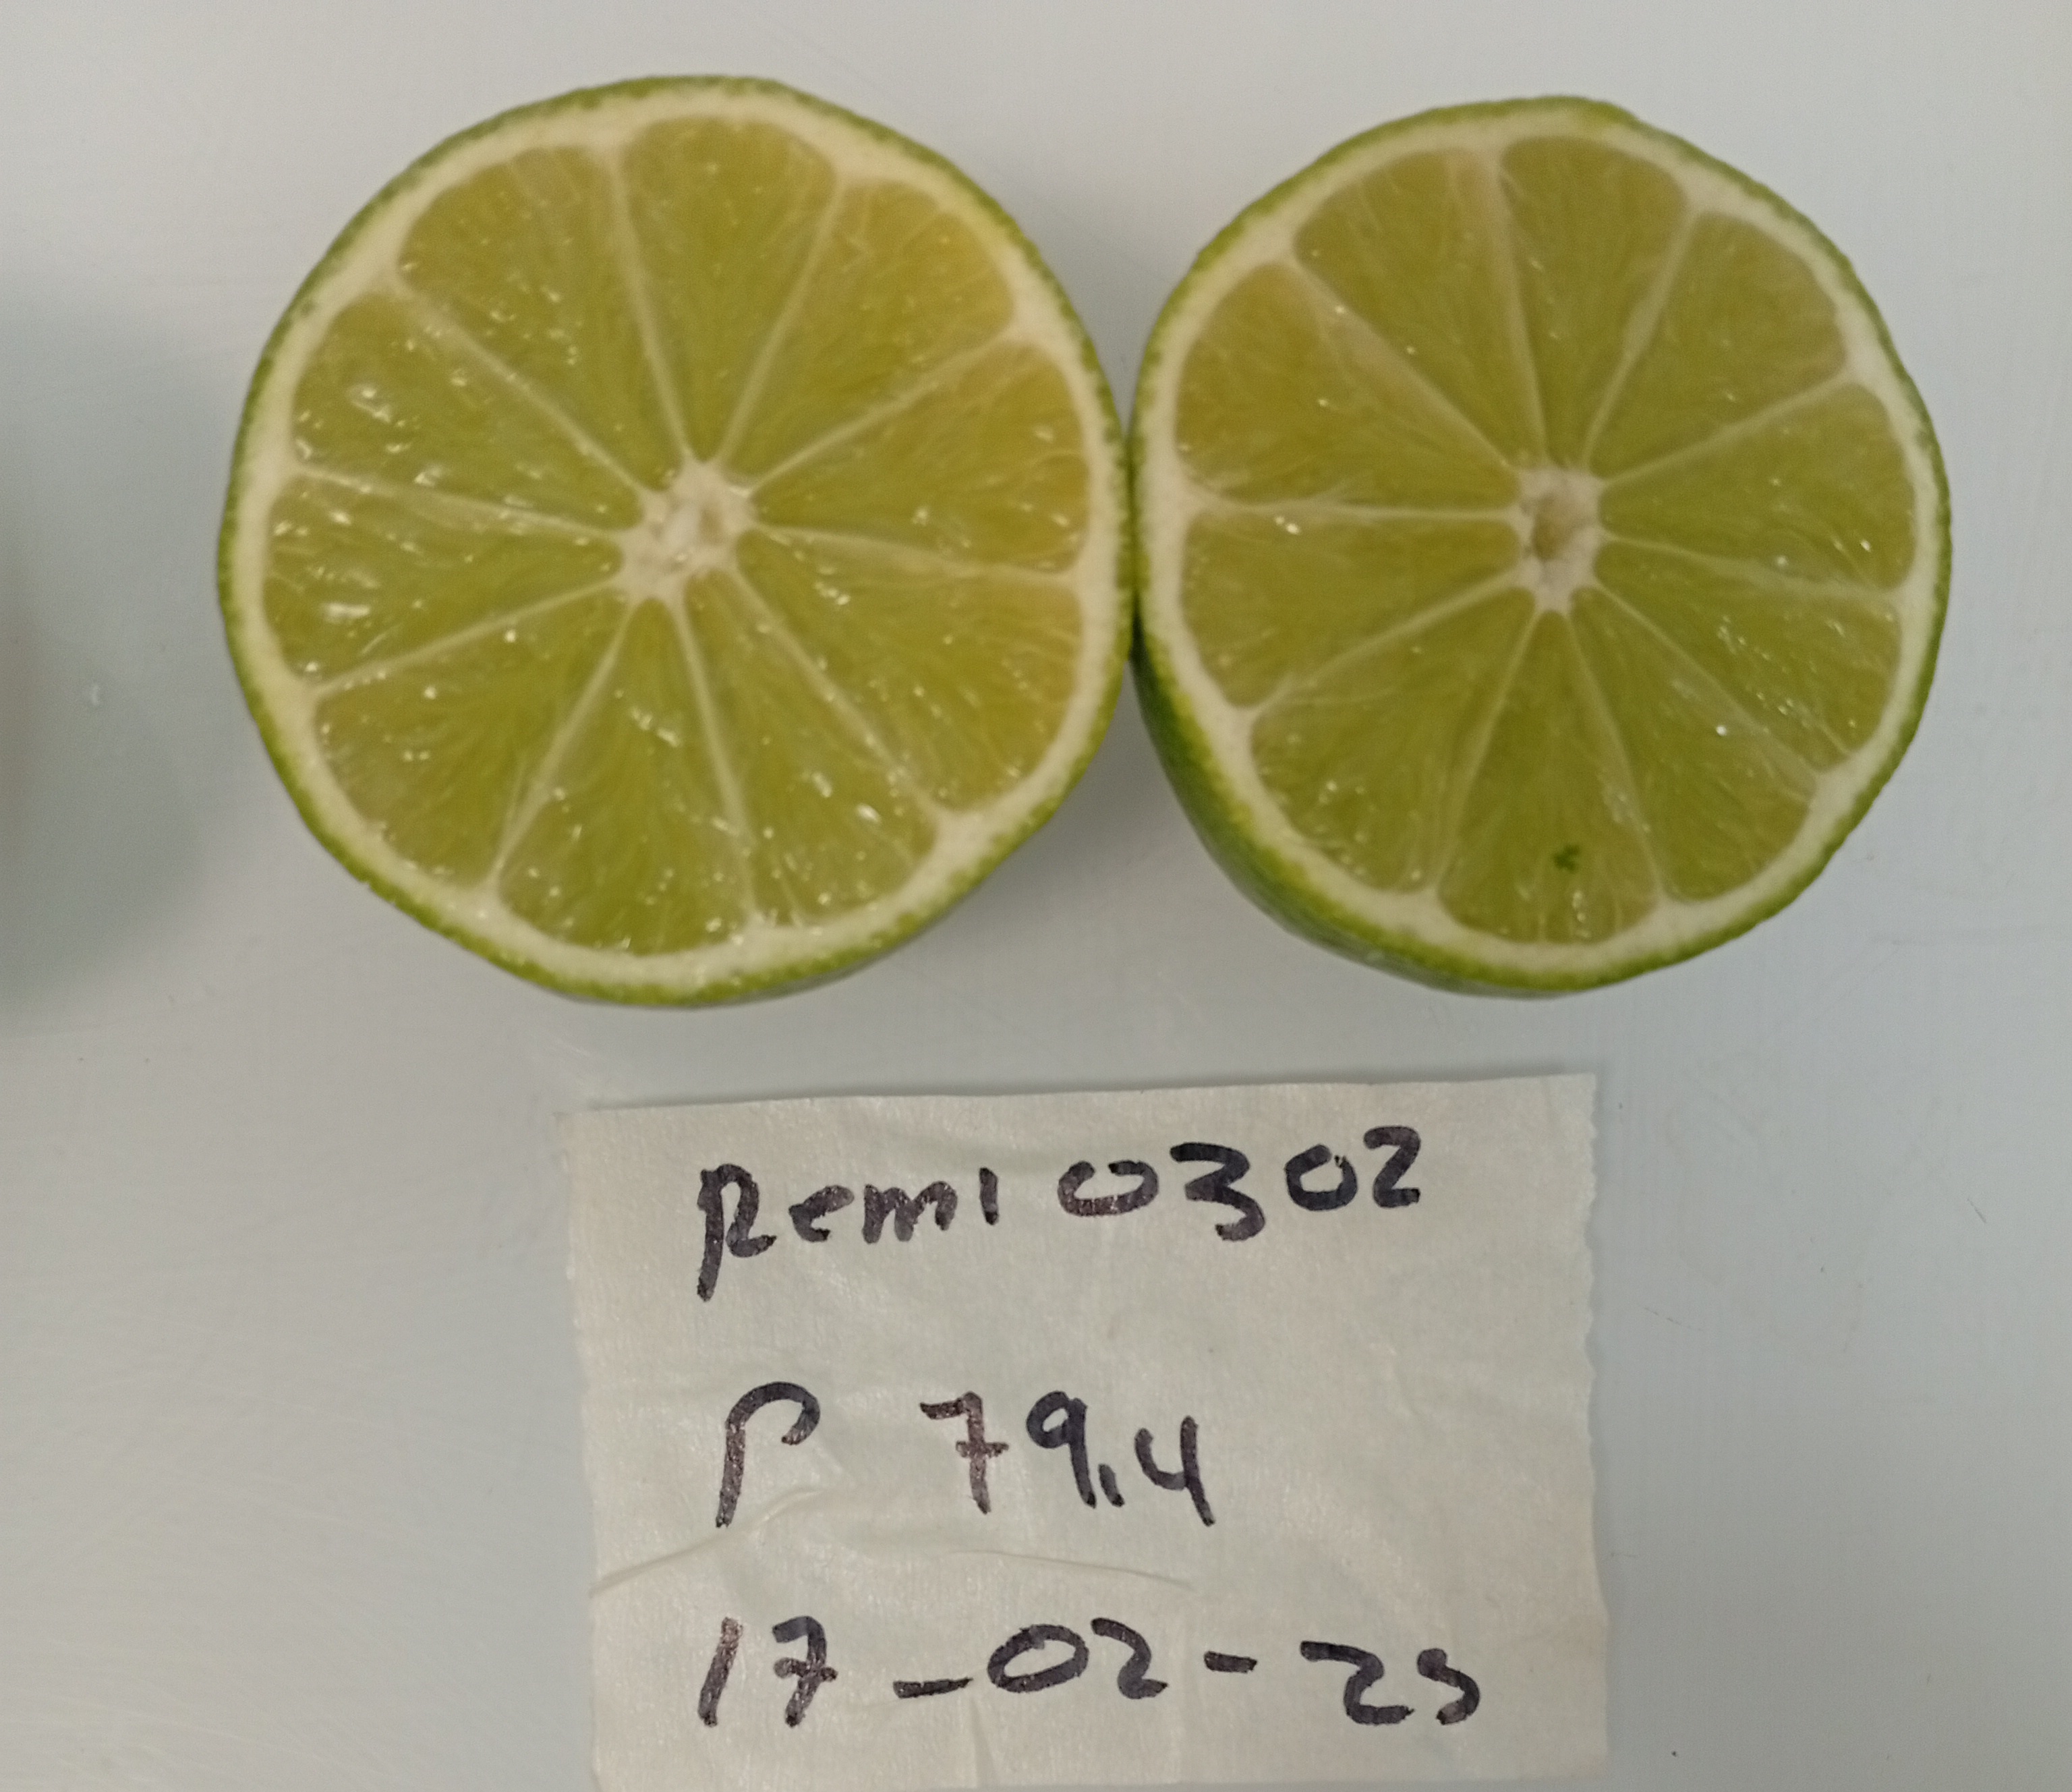 Remi 0302
P 79,4
17-02-23